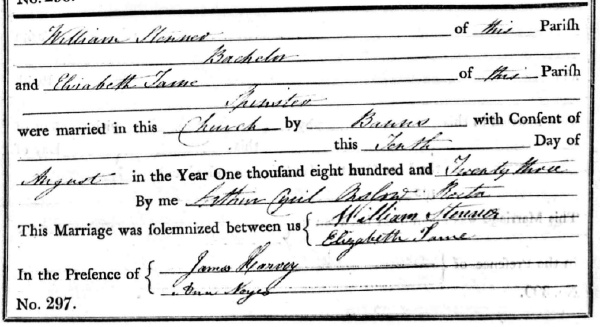 William Stenner of this Parish
Bachelor
and Elizabeth Tame of this Parish
Spinster
were married in this Church by Banns with Consent of
this Tenth Day of
August in the Year One thousand eight hundred and Twenty three
By me Arthur Cyril Onslow Rector
This Marriage was solemnized between us { William Stenner
Elizabeth Tame
In the Presence of { James Harvey
Ann Noyes
No. 297.